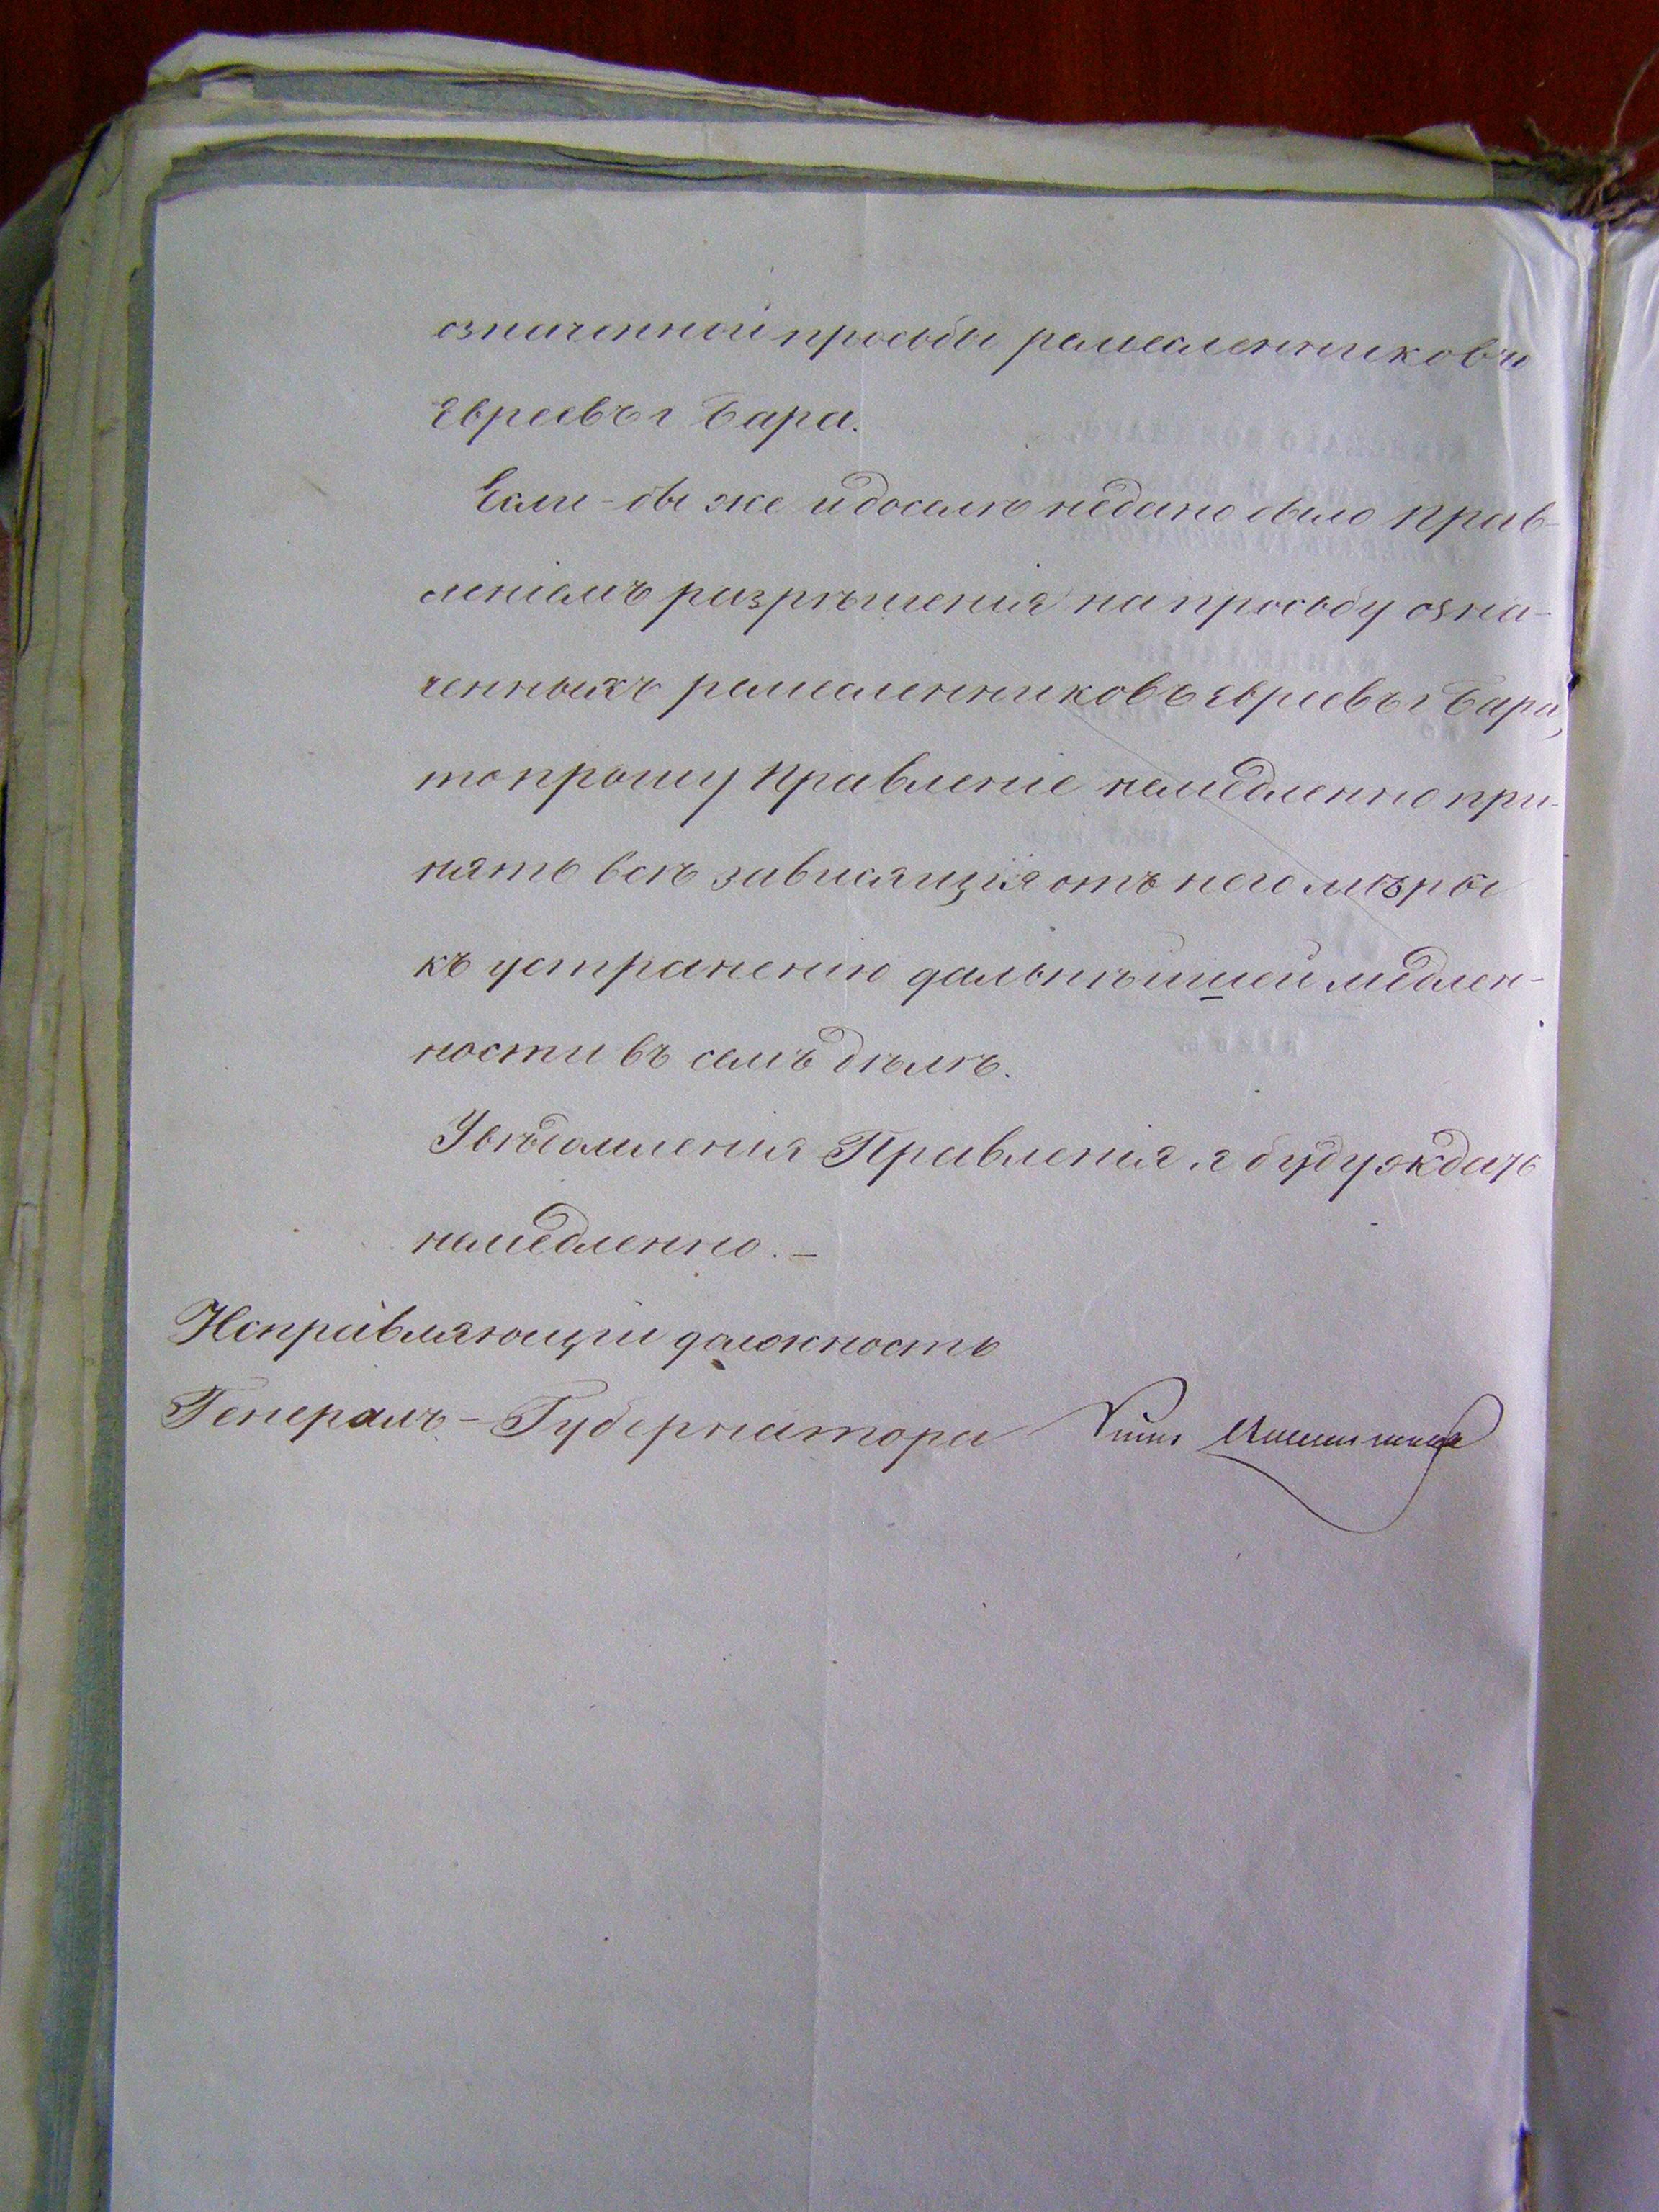 означенной просьбы ремесленниковъ
Евреевъ г Бара.
Если-бы же и доселѣ недано было Прав-
леніемъ разрѣшенія на просьбу озна-
ченныхъ ремесленниковъ Евреевъ г Бара,
то прошу Правленіе немедленно при-
нять всѣ зависящія отъ него мѣры
къ устраненію дальнѣйшей медлен-
ности въ семъ дѣлѣ.
Увѣдомленія Правленія я буду ждать
немедленно. —
Исправляющій должность
Генералъ-Губернатора